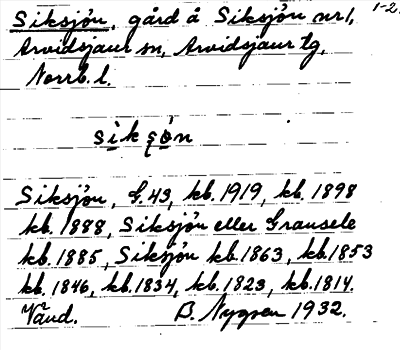 Siksjön, gård å Siksjön nr 1, 1-2.
Arvidsjaur sn, Arvidsjaur tg,
Norrb. l.
siksön
Siksjön, G. 43, kb. 1919, kb. 1898
kb. 1888, Siksjön eller Gransele
kb. 1885, Siksjön kb. 1863, kb. 1853
kb. 1846, kb. 1834, kb. 1823, kb. 1814.
B. Nygren 1932.